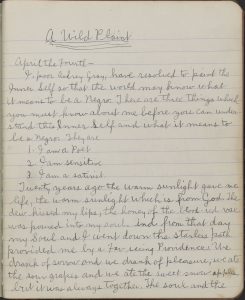 A Wild Plaint
April the Fourth —
I, poor Aubrey Gray, have resolved to paint the
Inner Self so that the world may know what
it means to be a Negro. There are three things which
you must know about me before you can under-
stand this Inner Self and what it means to
be a Negro. They are
1. I am a Poet
2. I am sensitive
3. I am a satirist
Twenty years ago the warm sunlight gave me
life, the warm sunlight which is from God. The
dew kissed my lips, the honey of the
was poured into my soul. And from that day
my Soul and I went down the starless path
provided me by a Far seeing Providence. We
drank of sorrow and we drank of pleasure, we ate
the sour grapes and we ate the sweet snow apples
but it was always together. The soul and the